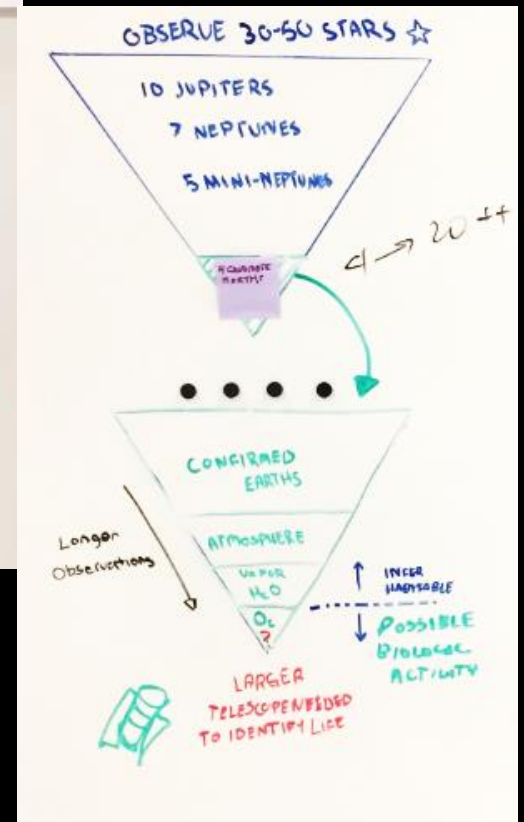 OBSERVE 30-50 STARS
10 JUPITERS
7 NEPTUNES
5 MINI-NEPTUNES
4 CANDIDATE
EARTHS
4 → 20 ++
CONFIRMED
EARTHS
ATMOSPHERE
VAPOR
H2O
O2
?
Longer
Observations
INFER
HABITABLE
POSSIBLE
BIOLOGICAL
ACTIVITY
LARGER
TELESCOPE NEEDED
TO IDENTIFY LIFE